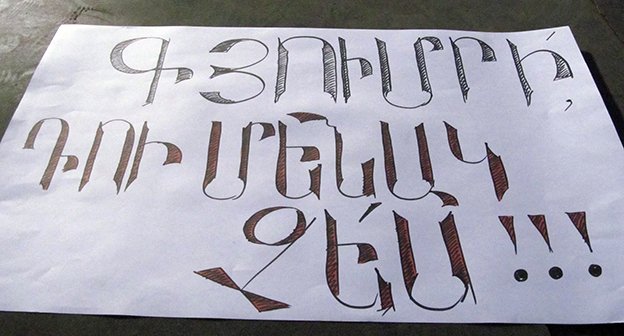 ԳՅՈՒՄՐԻ՛,
ԴՈՒ ՄԵՆԱԿ
ՉԵ՛Ս !!!